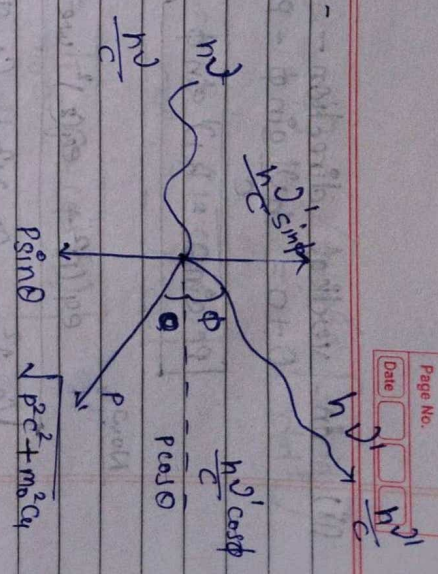 Page No.
Date
hν'
hν'/c
hν'/c sinφ
hν
hν/c
φ
θ
hν'/c cosφ
p cosθ
p
Psinθ
√p²c²+m₀²c4